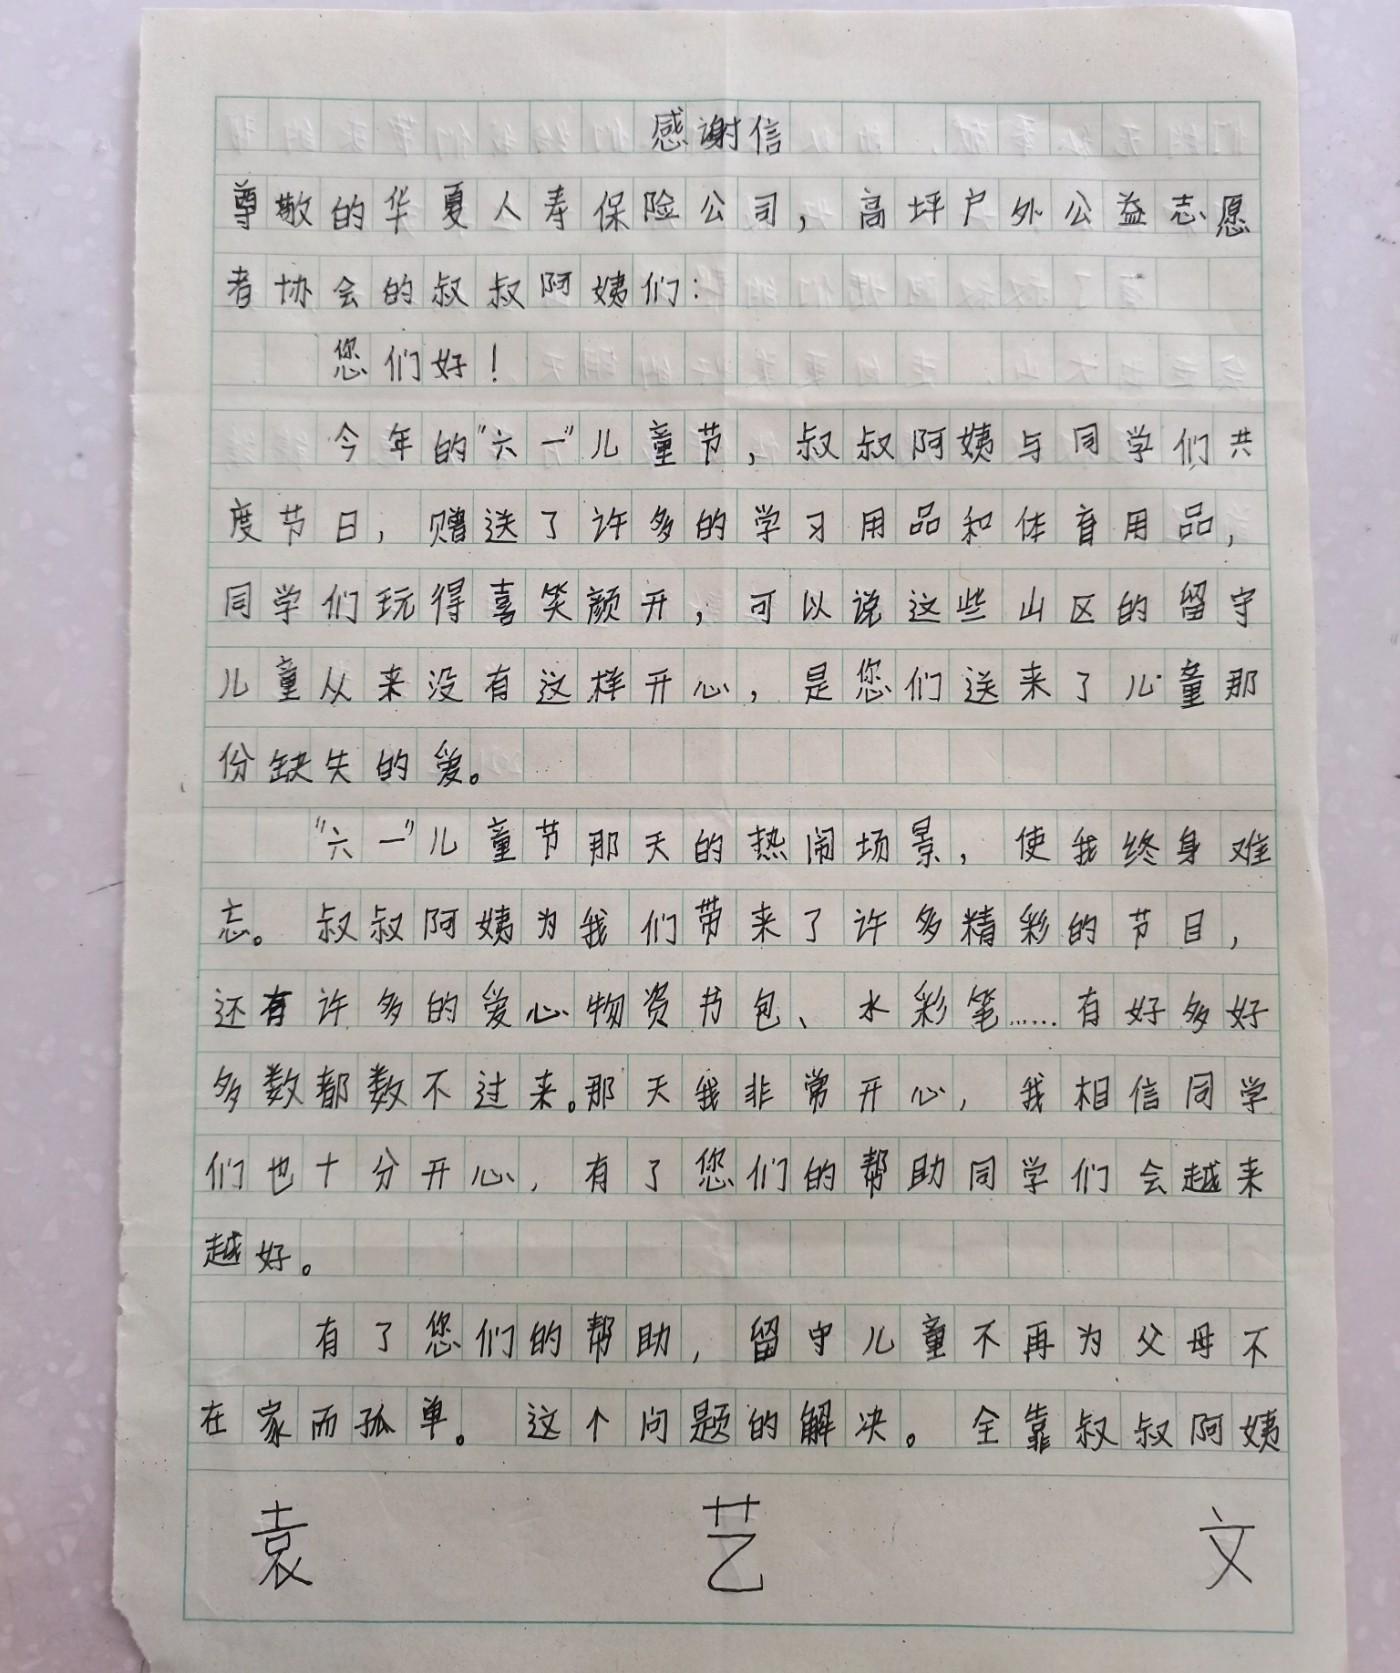 感谢信
尊敬的华夏人寿保险公司，高坪户外公益志愿
者协会的叔叔阿姨们：
您们好！
今年的"六一"儿童节，叔叔阿姨与同学们共
度节日，赠送了许多的学习用品和体育用品，
同学们玩得喜笑颜开，可以说这些山区的留守
儿童从来没有这样开心，是您们送来了儿童那
份缺失的爱。
"六一"儿童节那天的热闹场景，使我终身难
忘。叔叔阿姨为我们带来了许多精彩的节目，
还有许多的爱心物资书包、水彩笔……有好多好
多数都数不过来。那天我非常开心，我相信同学
们也十分开心，有了您们的帮助同学们会越来
越好。
有了您们的帮助，留守儿童不再为父母不
在家而孤单。这个问题的解决。全靠叔叔阿姨
袁艺文